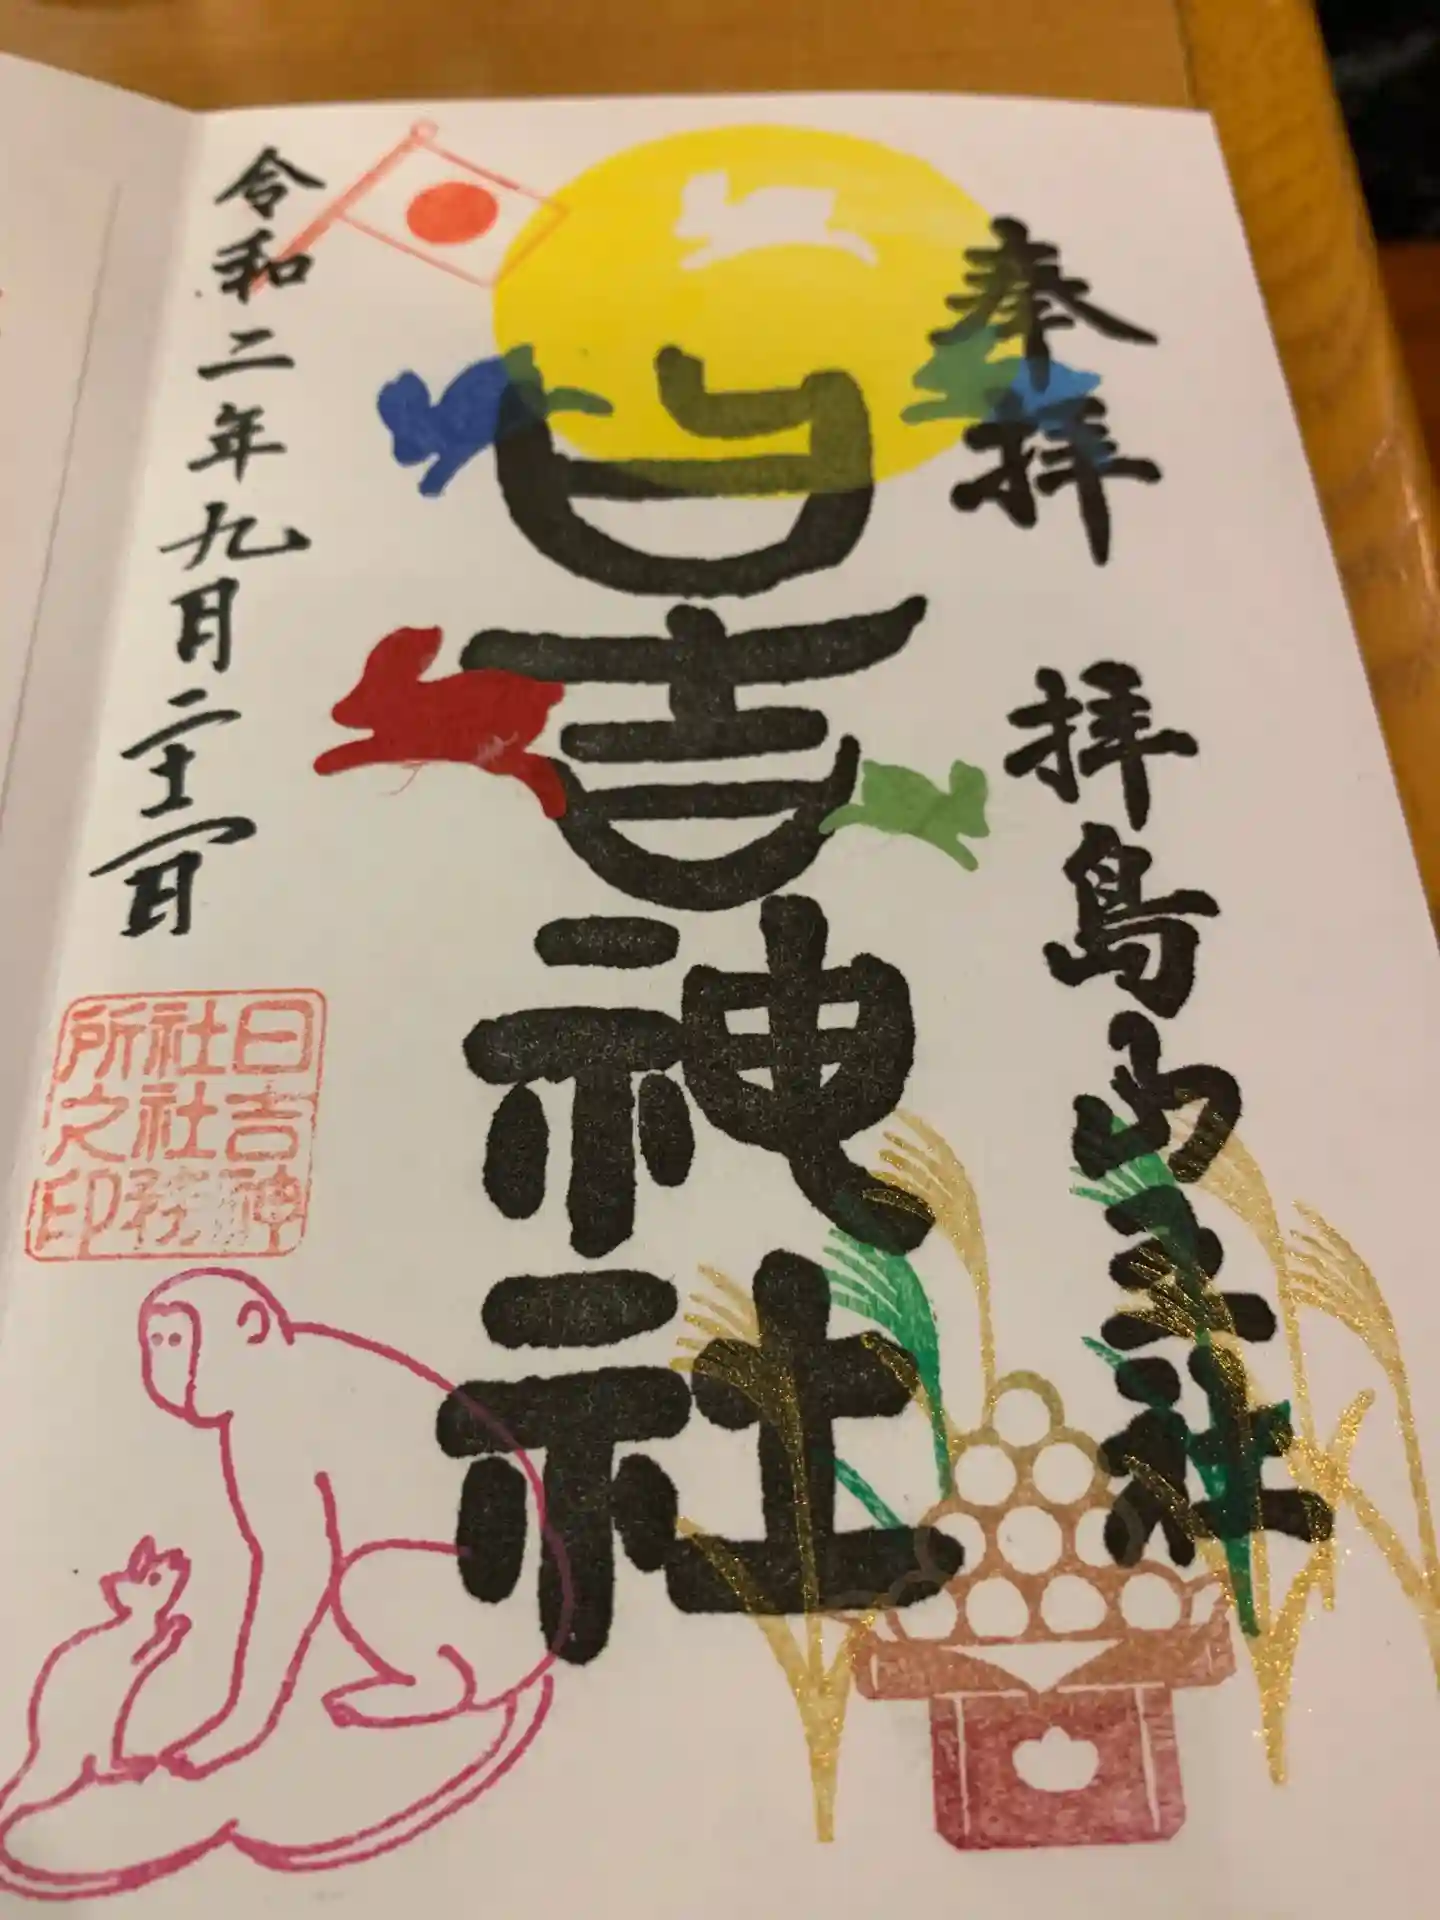 奉拝　拝島山王社
日吉神社
令和二年九月二十二日
日吉神
社社務
所之印